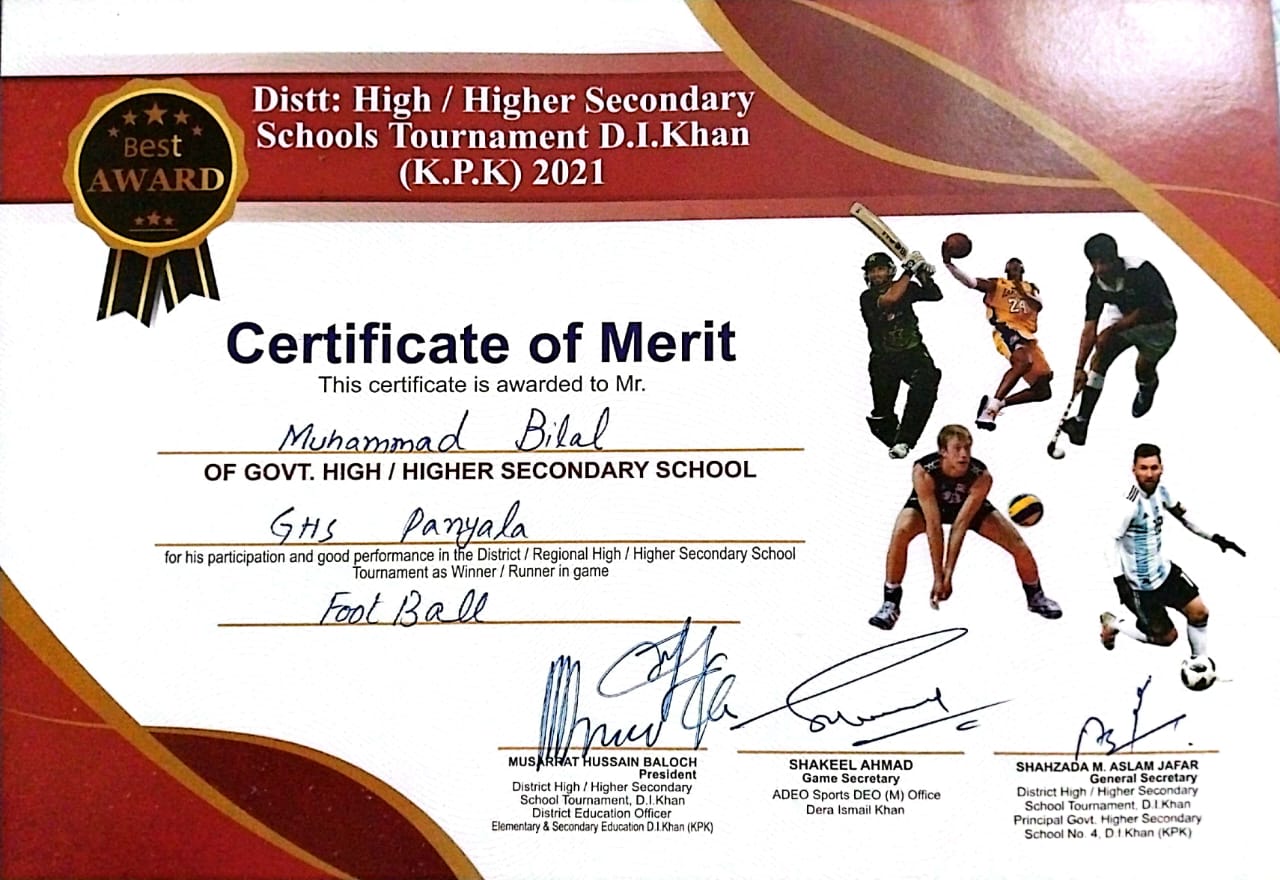 Distt: High / Higher Secondary
Schools Tournament D.I.Khan
(K.P.K) 2021
Best
AWARD
Certificate of Merit
This certificate is awarded to Mr.
Muhammad Bilal
OF GOVT. HIGH / HIGHER SECONDARY SCHOOL
GHS Panyala
for his participation and good performance in the District / Regional High / Higher Secondary School
Tournament as Winner / Runner in game
Foot Ball
24
MUSARRAT HUSSAIN BALOCH
President
District High / Higher Secondary
School Tournament, D.I.Khan
District Education Officer
Elementary & Secondary Education D.I.Khan (KPK)
SHAKEEL AHMAD
Game Secretary
ADEO Sports DEO (M) Office
Dera Ismail Khan
SHAHZADA M. ASLAM JAFAR
General Secretary
District High / Higher Secondary
School Tournament, D.I.Khan
Principal Govt. Higher Secondary
School No. 4, D.I.Khan (KPK)